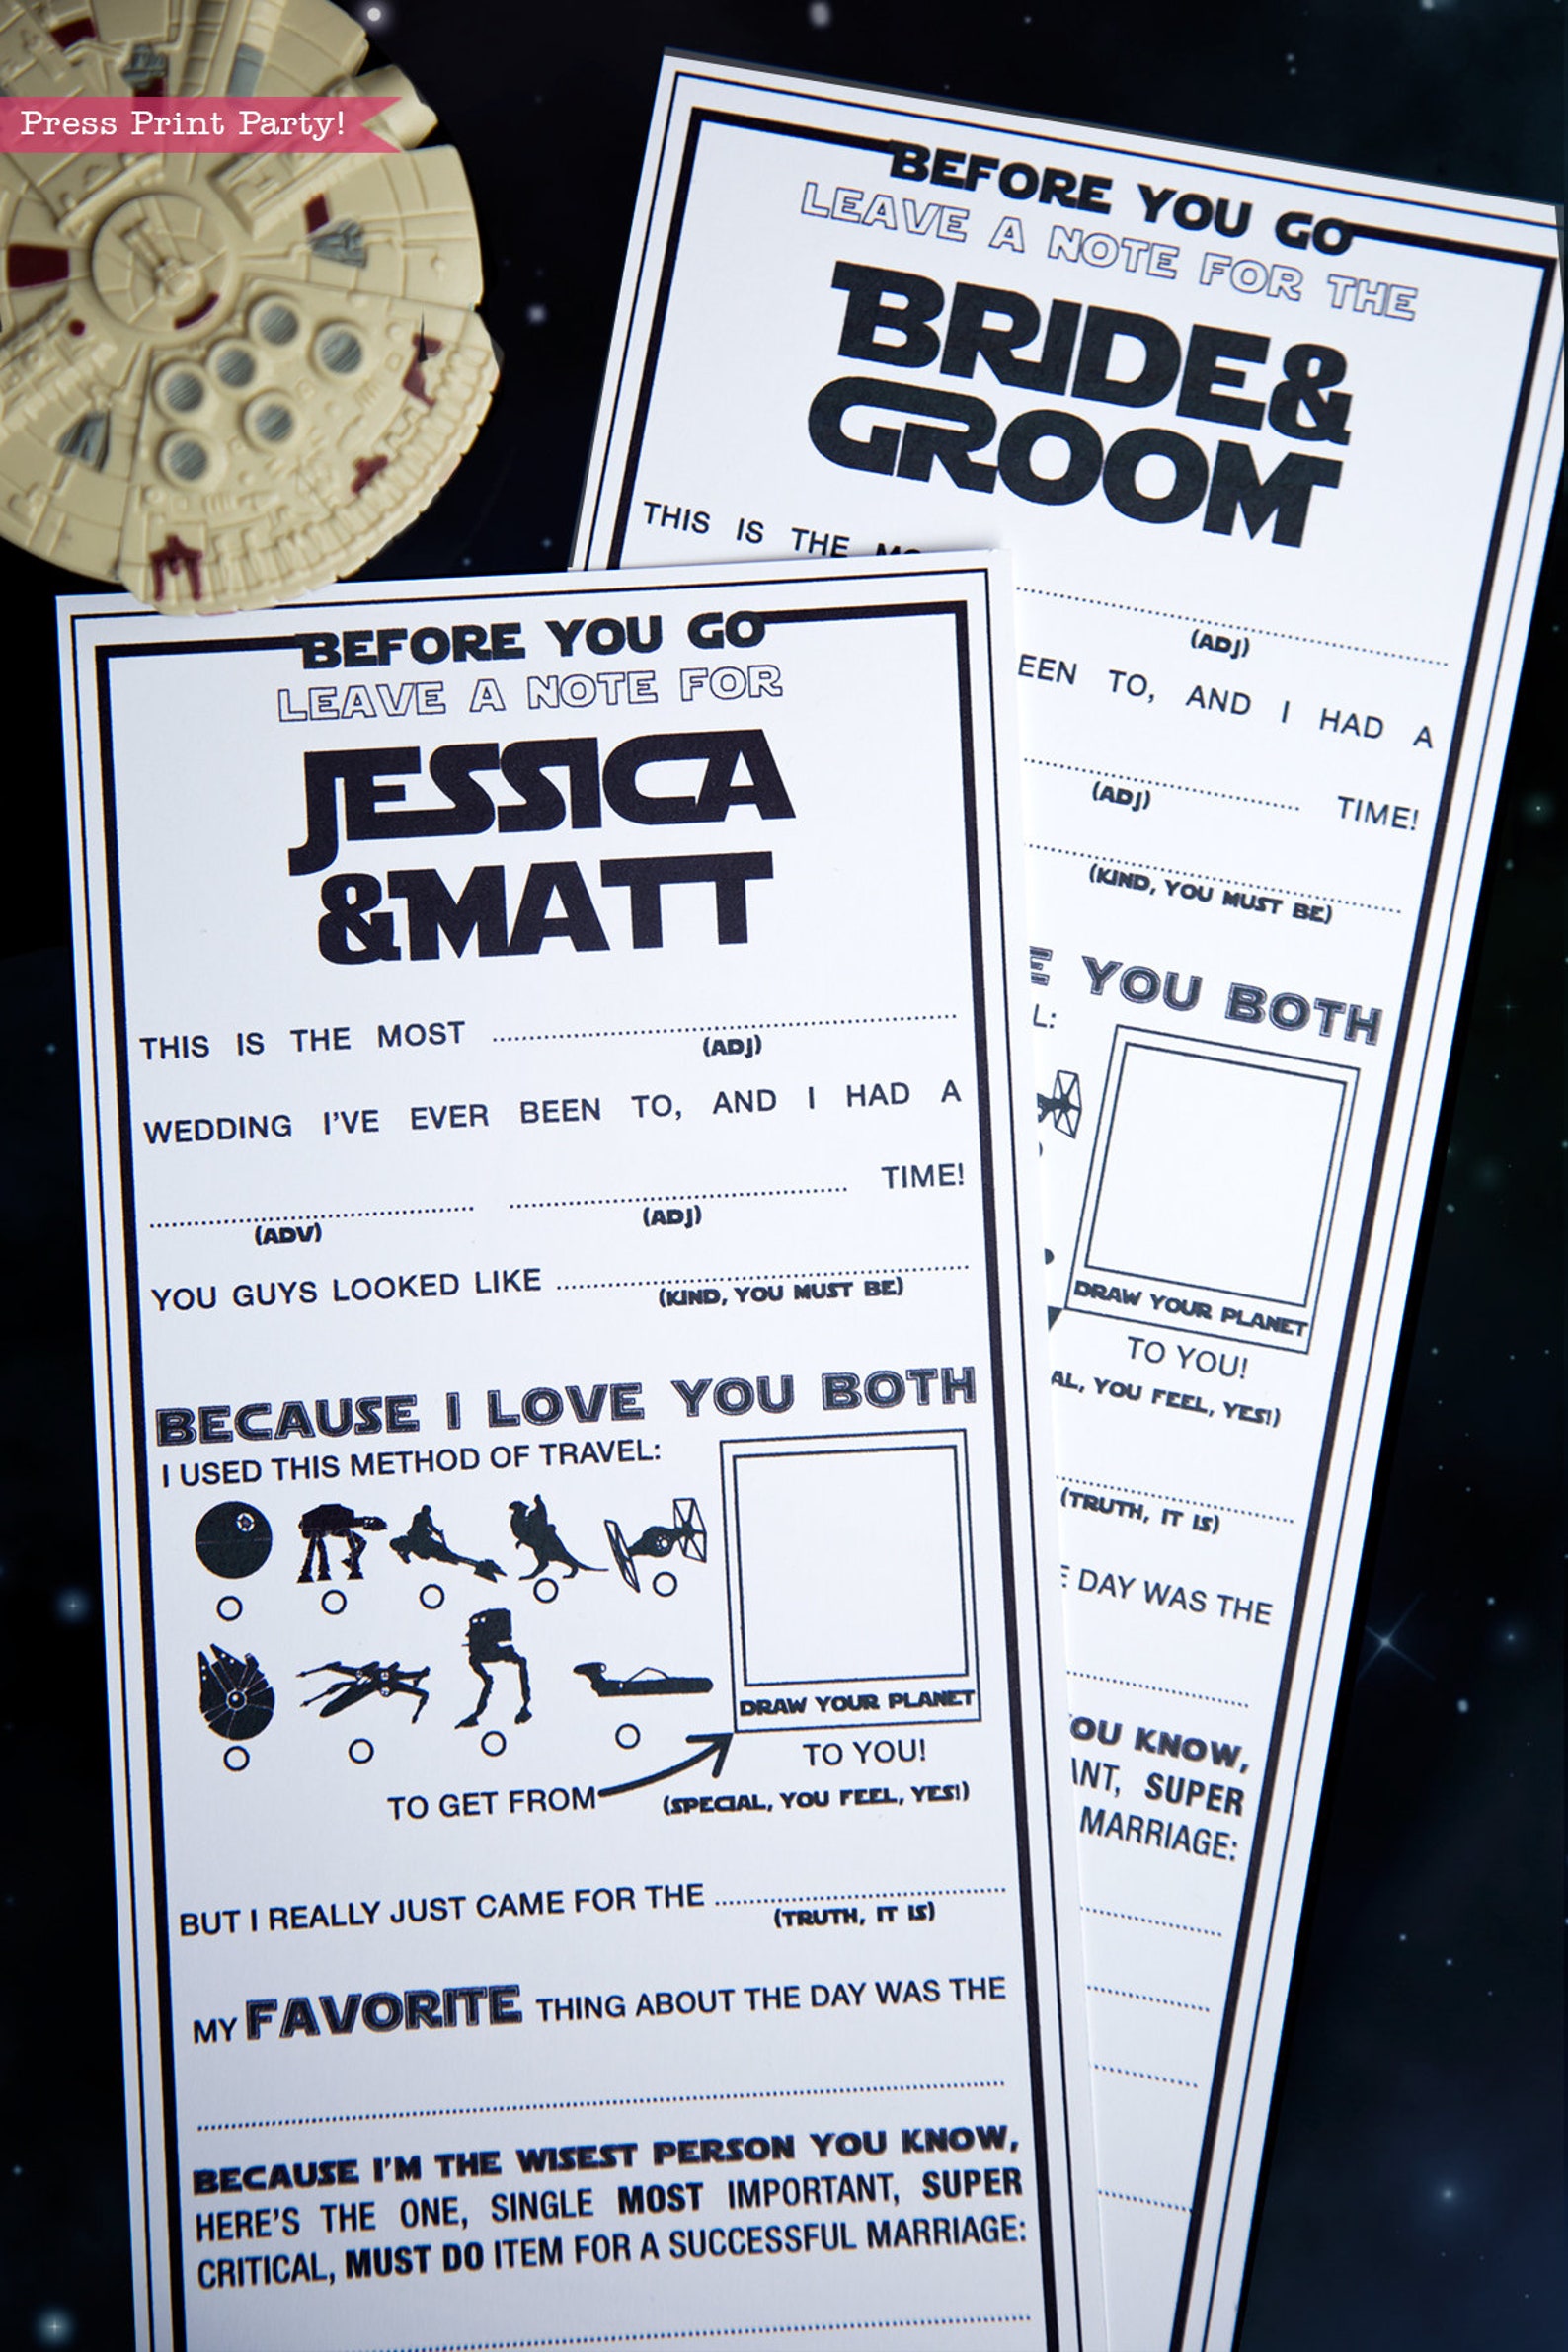 Press Print Party!
BEFORE YOU GO
LEAVE A NOTE FOR THE
BRIDE&
GROOM
THIS IS THE
(ADJ)
TO, AND I HAD A
(ADJ)
TIME!
(KIND, YOU MUST BE)
YOU BOTH
DRAW YOUR PLANET
TO YOU!
YOU FEEL, YES!)
(TRUTH, IT IS)
DAY WAS THE
KNOW,
SUPER
MARRIAGE:
BEFORE YOU GO
LEAVE A NOTE FOR
JESSICA
&MATT
THIS IS THE MOST
(ADJ)
WEDDING I'VE EVER BEEN TO, AND I HAD A
TIME!
(ADV) (ADJ)
YOU GUYS LOOKED LIKE
(KIND, YOU MUST BE)
BECAUSE I LOVE YOU BOTH
I USED THIS METHOD OF TRAVEL:
DRAW YOUR PLANET
TO GET FROM
TO YOU!
(SPECIAL, YOU FEEL, YES!)
BUT I REALLY JUST CAME FOR THE
(TRUTH, IT IS)
MY FAVORITE THING ABOUT THE DAY WAS THE
BECAUSE I'M THE WISEST PERSON YOU KNOW,
HERE'S THE ONE, SINGLE MOST IMPORTANT, SUPER
CRITICAL, MUST DO ITEM FOR A SUCCESSFUL MARRIAGE: